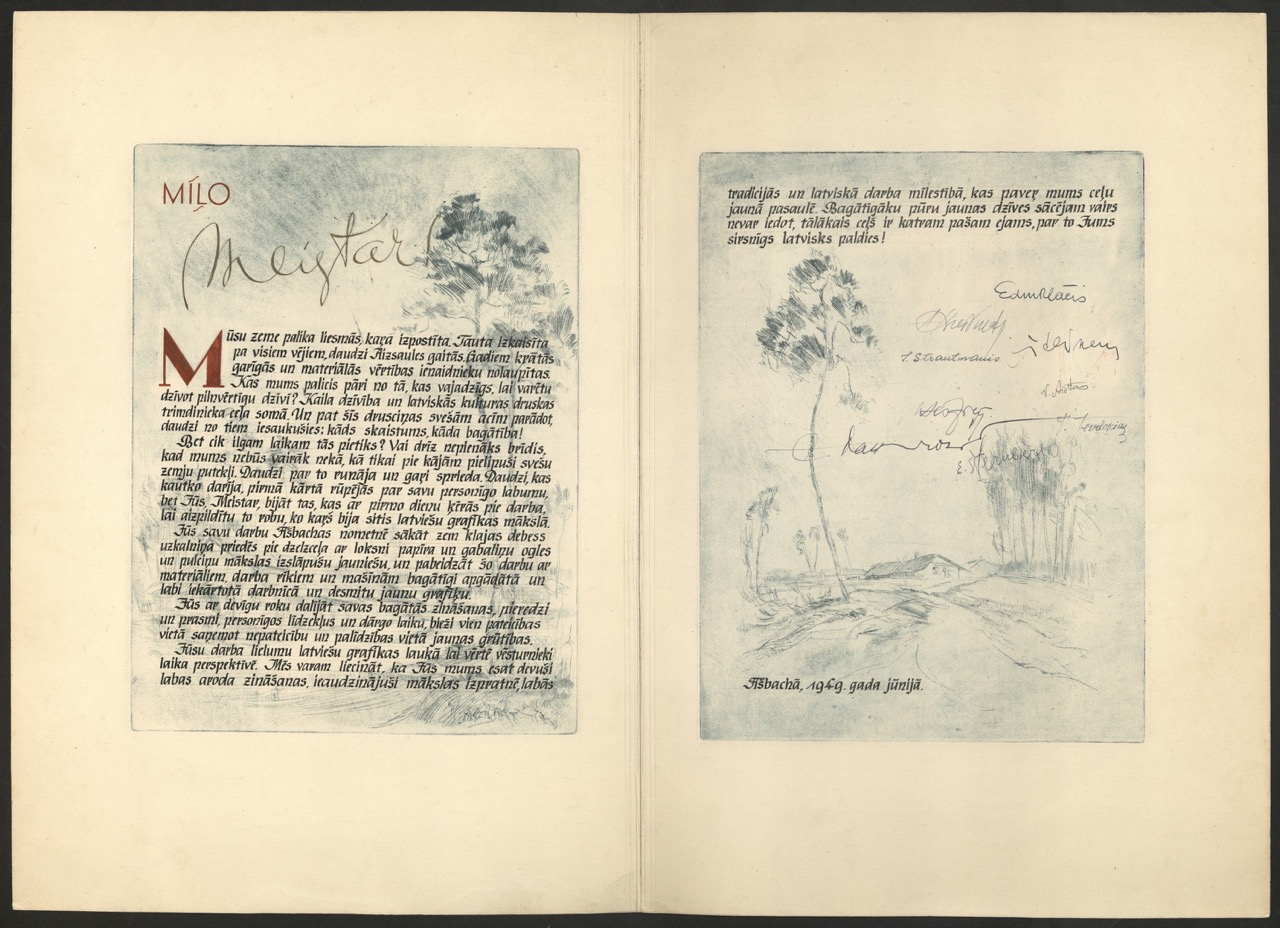 MĪĻO
Meistar!
Mūsu zeme palika liesmās, kaŗā izpostīta. Tauta izkaisīta
pa visiem vējiem, daudzi Aizsaules gaitās. Gadiem krātās
garīgās un materiālās vērtības ienaidnieku nolaupītas.
Kas mums palicis pāri no tā, kas vajadzīgs, lai varētu
dzīvot pilnvērtīgu dzīvi? Kaila dzīvība un latviskās kulturas druskas
trimdinieka ceļa somā. Un pat šīs drusciņas svešām acīm parādot,
daudzi no tiem iesaukušies: kāds skaistums, kāda bagātība!
Bet cik ilgam laikam tās pietiks? Vai drīz nepienāks brīdis,
kad mums nebūs vairāk nekā, kā tikai pie kājām pielipuši svešu
zemju putekļi. Daudzi par to runāja un gaŗi sprieda. Daudzi, kas
kautko darīja, pirmā kārtā rūpējās par savu personīgo labumu,
bet Jūs, Meistar, bijāt tas, kas ar pirmo dienu ķērās pie darba,
lai aizpildītu to robu, ko kaŗš bija sitis latviešu grafikas mākslā.
Jūs savu darbu Ašbachas nometnē sākāt zem klajas debess
uzkalniņa priedēs pie dzelzceļa ar loksni papīra un gabaliņu ogles
un pulciņu mākslas izslāpušu jauniešu, un pabeidzāt šo darbu ar
materiāliem, darba rīkiem un mašīnām bagātīgi apgādātā un
labi iekārtotā darbnīcā un desmitu jaunu grafiķu.
Jūs ar devīgu roku dalījāt savas bagātās zināšanas, pieredzi
un prasmi, personīgos līdzekļus un dārgo laiku, bieži vien pateicības
vietā saņemot nepateicību un palīdzības vietā jaunas grūtības.
Jūsu darba lielumu latviešu grafikas laukā lai vērtē vēsturnieki
laika perspektīvē. Mēs varam liecināt, ka Jūs mums esat devuši
labas aroda zināšanas, ieaudzinājuši mākslas izpratnē, labās
tradicijās un latviskā darba mīlestībā, kas paveŗ mums ceļu
jaunā pasaulē. Bagātīgāku pūru jaunas dzīves sācējam vairs
nevar iedot, tālākais ceļš ir katram pašam ejams, par to Jums
sirsnīgs latvisks paldies!
J. Strautmanis
Ašbachā, 1949. gada jūnijā.